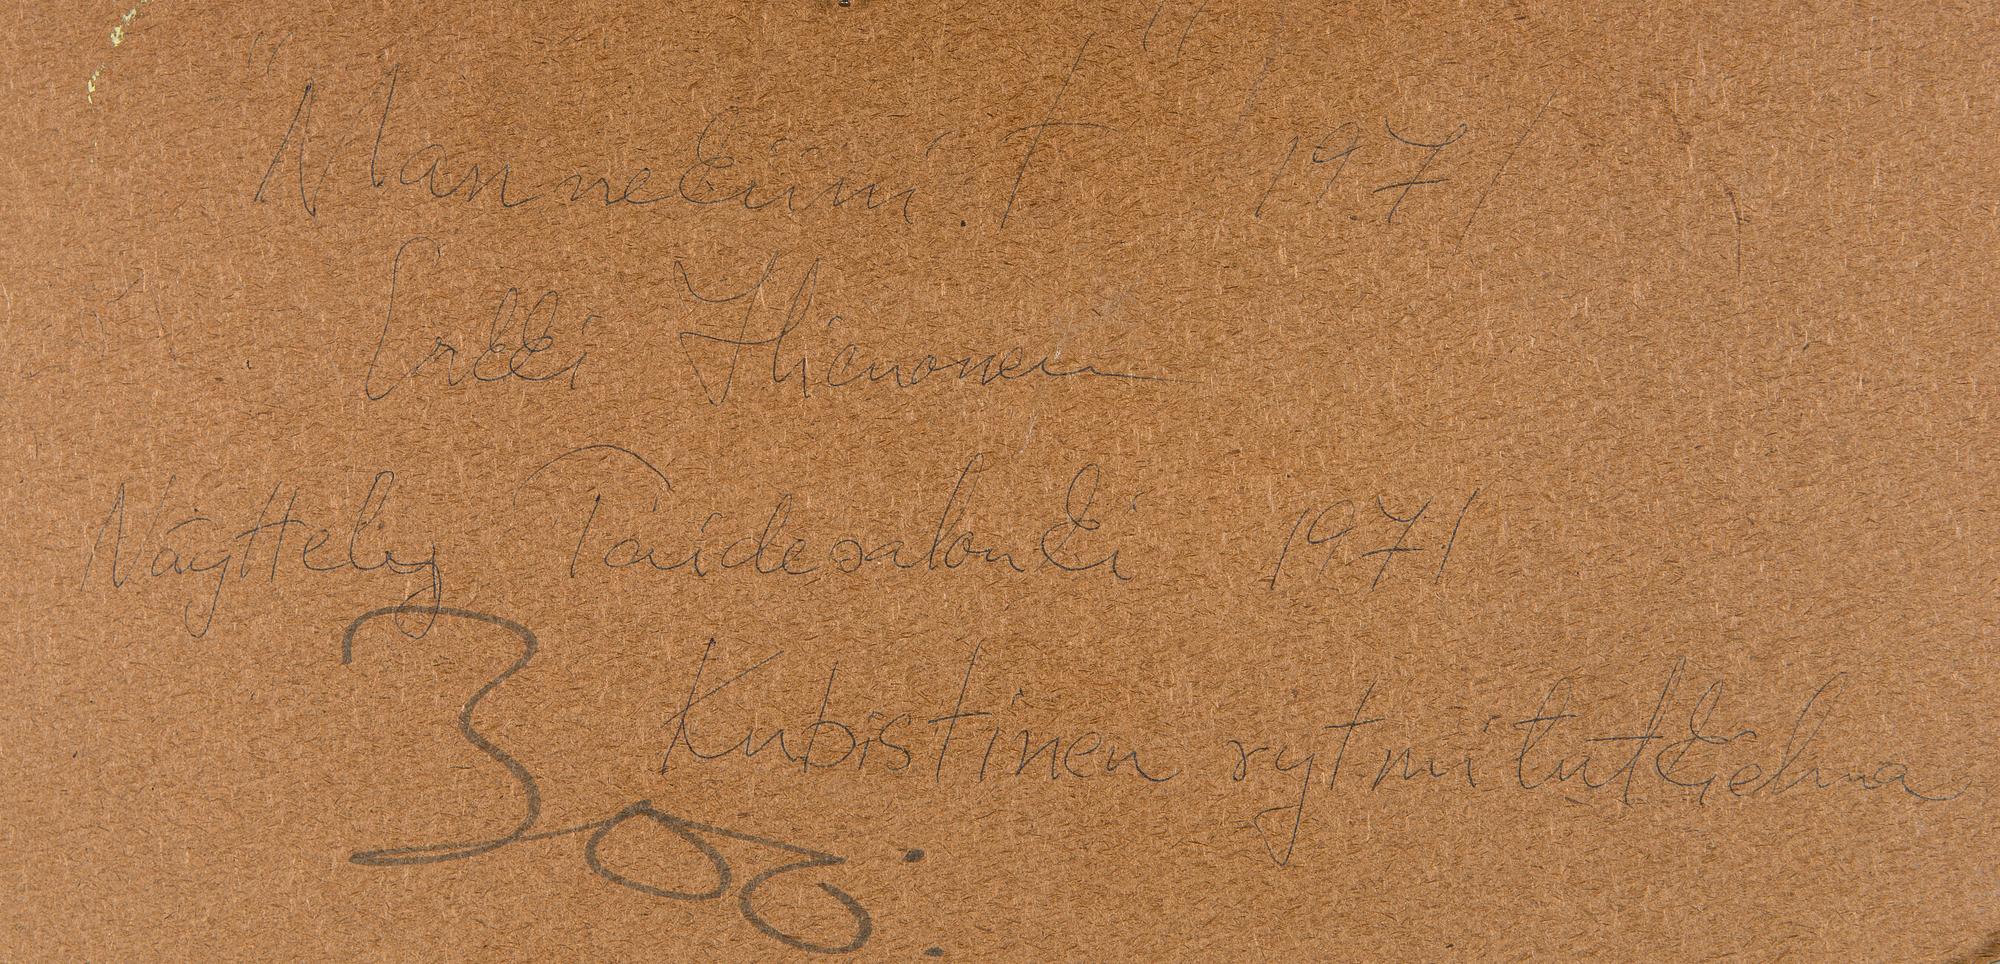 "Mannekiini.t" 1971
Erkki Hienonen
Näyttely Taidesalonki 1971
Kubistinen rytmitutkielma